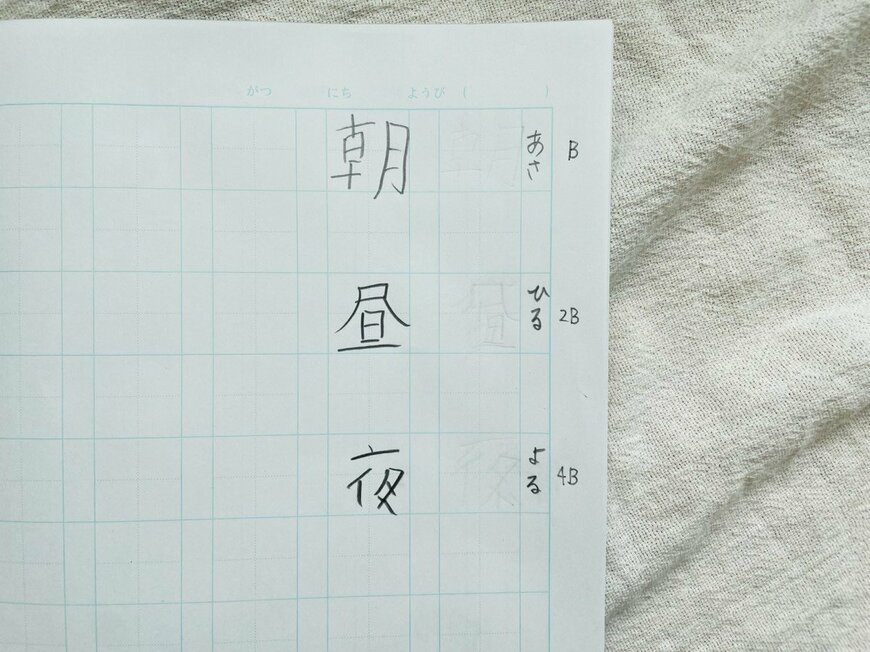 がつ にち ようび ( )
B
あさ
朝
朝
2B
ひる
昼
昼
4B
よる
夜
夜